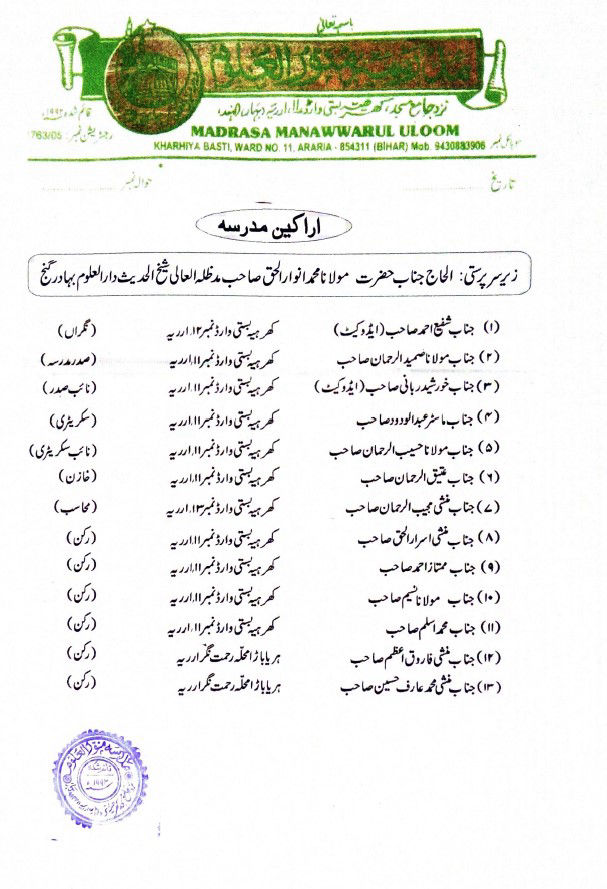 باسمہ تعالیٰ
مدرسہ منور العلوم
نزد جامع مسجد، کھرہیہ بستی وارڈ نمبر ۱۱، ارریہ (بہار) الہند
قائم شدہ ۱۹۹۲ء
رجسٹریشن نمبر: 763/05
MADRASA MANAWWARUL ULOOM
KHARHIYA BASTI, WARD NO. 11, ARARIA - 854311 (BIHAR) Mob. 9430883906 موبائل نمبر
تاریخ حوالہ نمبر
اراکین مدرسہ
زیر سرپرستی: الحاج جناب حضرت مولانا محمد انوار الحق صاحب مدظلہ العالی شیخ الحدیث دار العلوم بہادر گنج
(۱) جناب شفیع احمد صاحب (ایڈوکیٹ) کھرہیہ بستی وارڈ نمبر ۱۲، ارریہ (نگراں)
(۲) جناب مولانا صمید الرحمان صاحب کھرہیہ بستی وارڈ نمبر ۱۱، ارریہ (صدر مدرسہ)
(۳) جناب خورشید ربانی صاحب (ایڈوکیٹ) کھرہیہ بستی وارڈ نمبر ۱۱، ارریہ (نائب صدر)
(۴) جناب ماسٹر عبد الودود صاحب کھرہیہ بستی وارڈ نمبر ۱۱، ارریہ (سکریٹری)
(۵) جناب مولانا حسیب الرحمان صاحب کھرہیہ بستی وارڈ نمبر ۱۱، ارریہ (نائب سکریٹری)
(۶) جناب عتیق الرحمان صاحب کھرہیہ بستی وارڈ نمبر ۱۱، ارریہ (خازن)
(۷) جناب منشی مجیب الرحمان صاحب کھرہیہ بستی وارڈ نمبر ۱۳، ارریہ (محاسب)
(۸) جناب منشی اسرار الحق صاحب کھرہیہ بستی وارڈ نمبر ۱۱، ارریہ (رکن)
(۹) جناب ممتاز احمد صاحب کھرہیہ بستی وارڈ نمبر ۱۱، ارریہ (رکن)
(۱۰) جناب مولانا نسیم صاحب کھرہیہ بستی وارڈ نمبر ۱۱، ارریہ (رکن)
(۱۱) جناب محمد اسلم صاحب کھرہیہ بستی وارڈ نمبر ۱۱، ارریہ (رکن)
(۱۲) جناب منشی فاروق اعظم صاحب ہریاباڑا محلہ رحمت نگر ارریہ (رکن)
(۱۳) جناب منشی محمد عارف حسین صاحب ہریاباڑا محلہ رحمت نگر ارریہ (رکن)
مدرسہ منور العلوم
قائم شدہ
۱۹۹۲ء